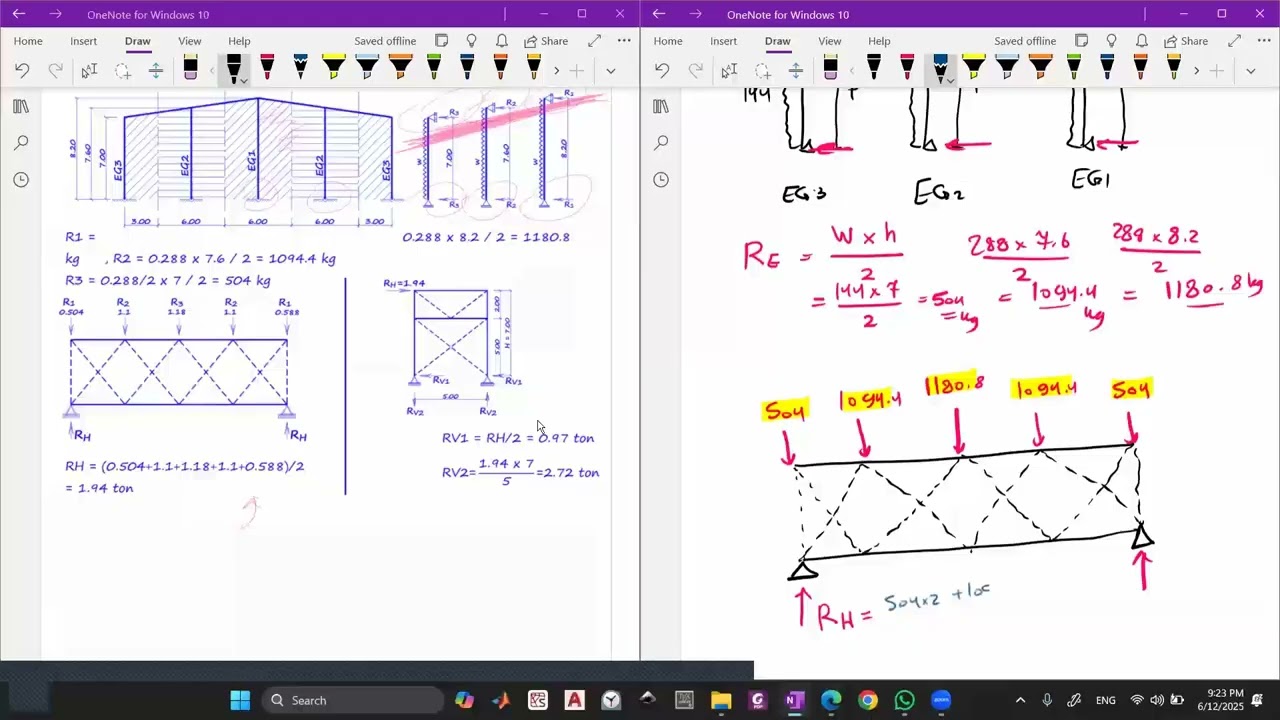 OneNote for Windows 10
Home Insert Draw View Help Saved offline Share
8.20 7.60 7.00
EG3 EG2 EG1 EG2 EG3
3.00 6.00 6.00 6.00 3.00
R3 R2 R1
W 7.00 W 7.60 W 8.20
R3 R2 R1
R1 = 0.288 x 8.2 / 2 = 1180.8
kg , R2 = 0.288 x 7.6 / 2 = 1094.4 kg
R3 = 0.288/2 x 7 / 2 = 504 kg
R1 R2 R3 R2 R1
0.504 1.1 1.18 1.1 0.588
RH RH
RH = (0.504+1.1+1.18+1.1+0.588)/2
= 1.94 ton
RH=1.94
2.00
5.00 H = 7.00
RV1 RV1
5.00
RV2 RV2
RV1 = RH/2 = 0.97 ton
RV2= 1.94 x 7 / 5 =2.72 ton
OneNote for Windows 10
Home Insert Draw View Help Saved offline Share
144
EG3 EG2 EG1
RE = W x h / 2
288 x 7.6 / 2
288 x 8.2 / 2
= 144 x 7 / 2 = 504 kg
= 1094.4 kg
= 1180.8 kg
504 1094.4 1180.8 1094.4 504
RH = 504x2 +10
Search
ENG
9:23 PM
6/12/2025